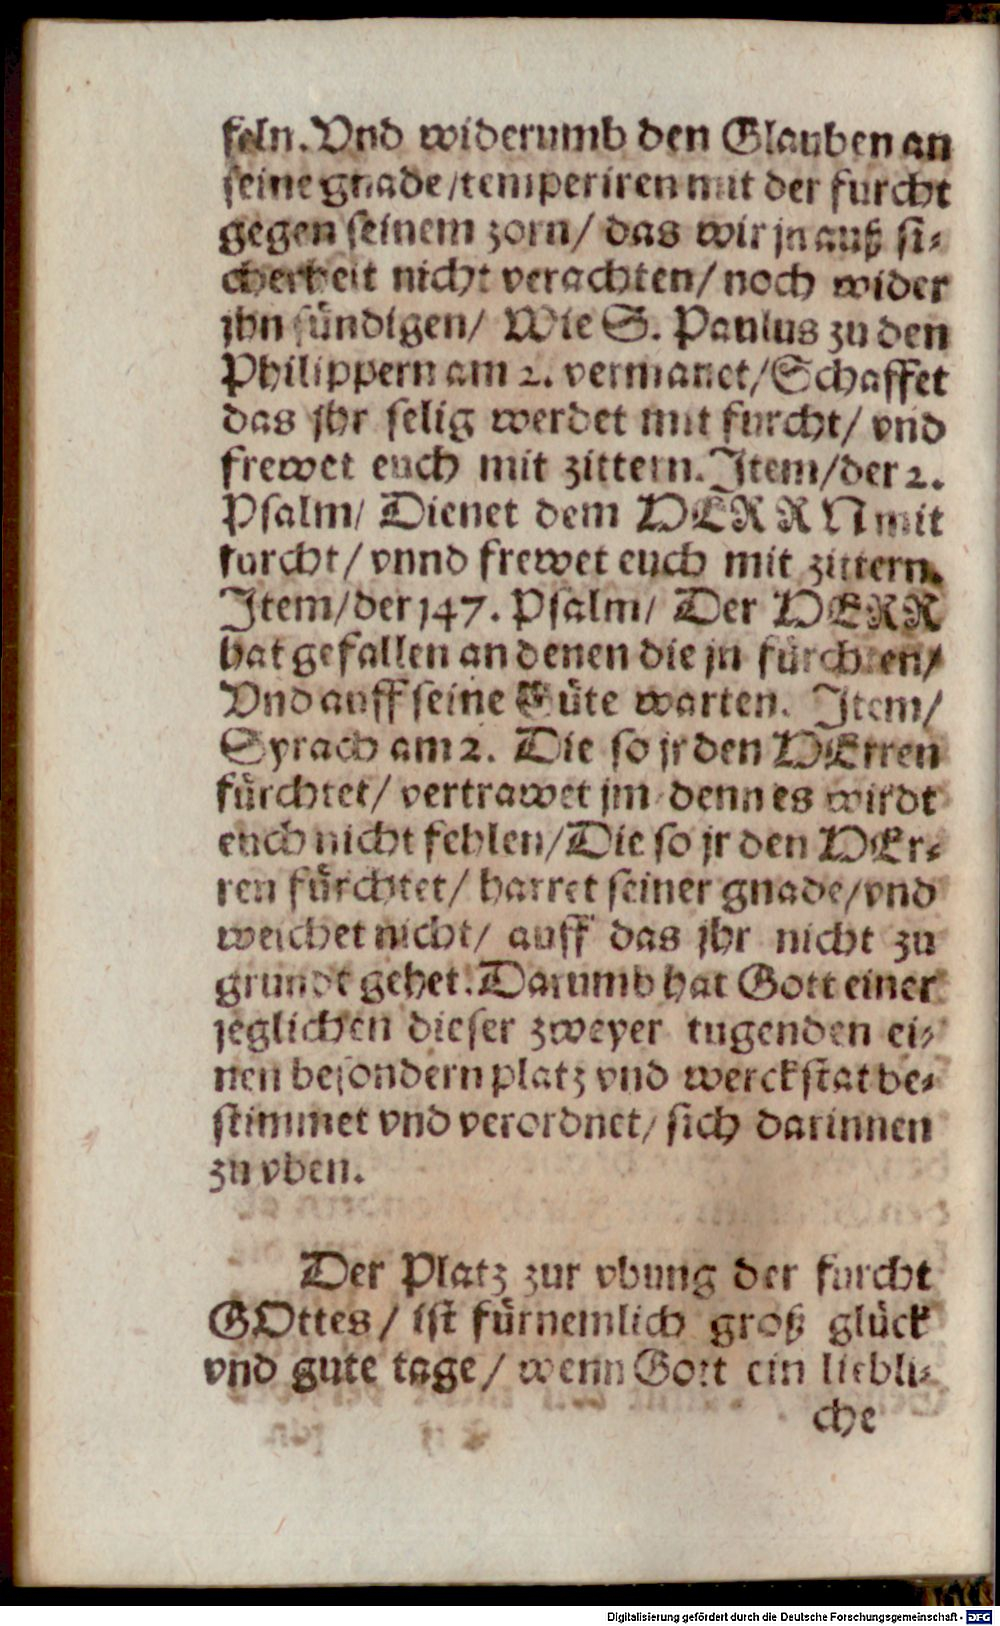 feln. Vnd widerumb den Glauben an
seine gnade / temperiren mit der furcht
gegen seinem zorn / das wir jn auß si-
cherheit nicht verachten / noch wider
jhn sündigen / Wie S. Paulus zu den
Philippern am 2. vermanet / Schaffet
das jhr selig werdet mit furcht / vnd
frewet euch mit zittern. Item / der 2.
Psalm / Dienet dem HERRN mit
furcht / vnnd frewet euch mit zittern.
Item / der 147. Psalm / Der HERR
hat gefallen an denen die jn fürchten /
Vnd auff seine Güte warten. Item /
Syrach am 2. Die so jr den HErren
fürchtet / vertrawet jm denn es wirdt
euch nicht fehlen / Die so jr den HEr-
ren fürchtet / harret seiner gnade / vnd
weichet nicht / auff das jhr nicht zu
grundt gehet. Darumb hat Gott einer
jeglichen dieser zweyer tugenden ei-
nen besondern platz vnd werckstat be-
stimmet vnd verordnet / sich darinnen
zu vben.
Der Platz zur vbung der furcht
GOttes / ist fürnemlich groß glück
vnd gute tage / wenn Gott ein liebli-
che
Digitalisierung gefördert durch die Deutsche Forschungsgemeinschaft - DFG